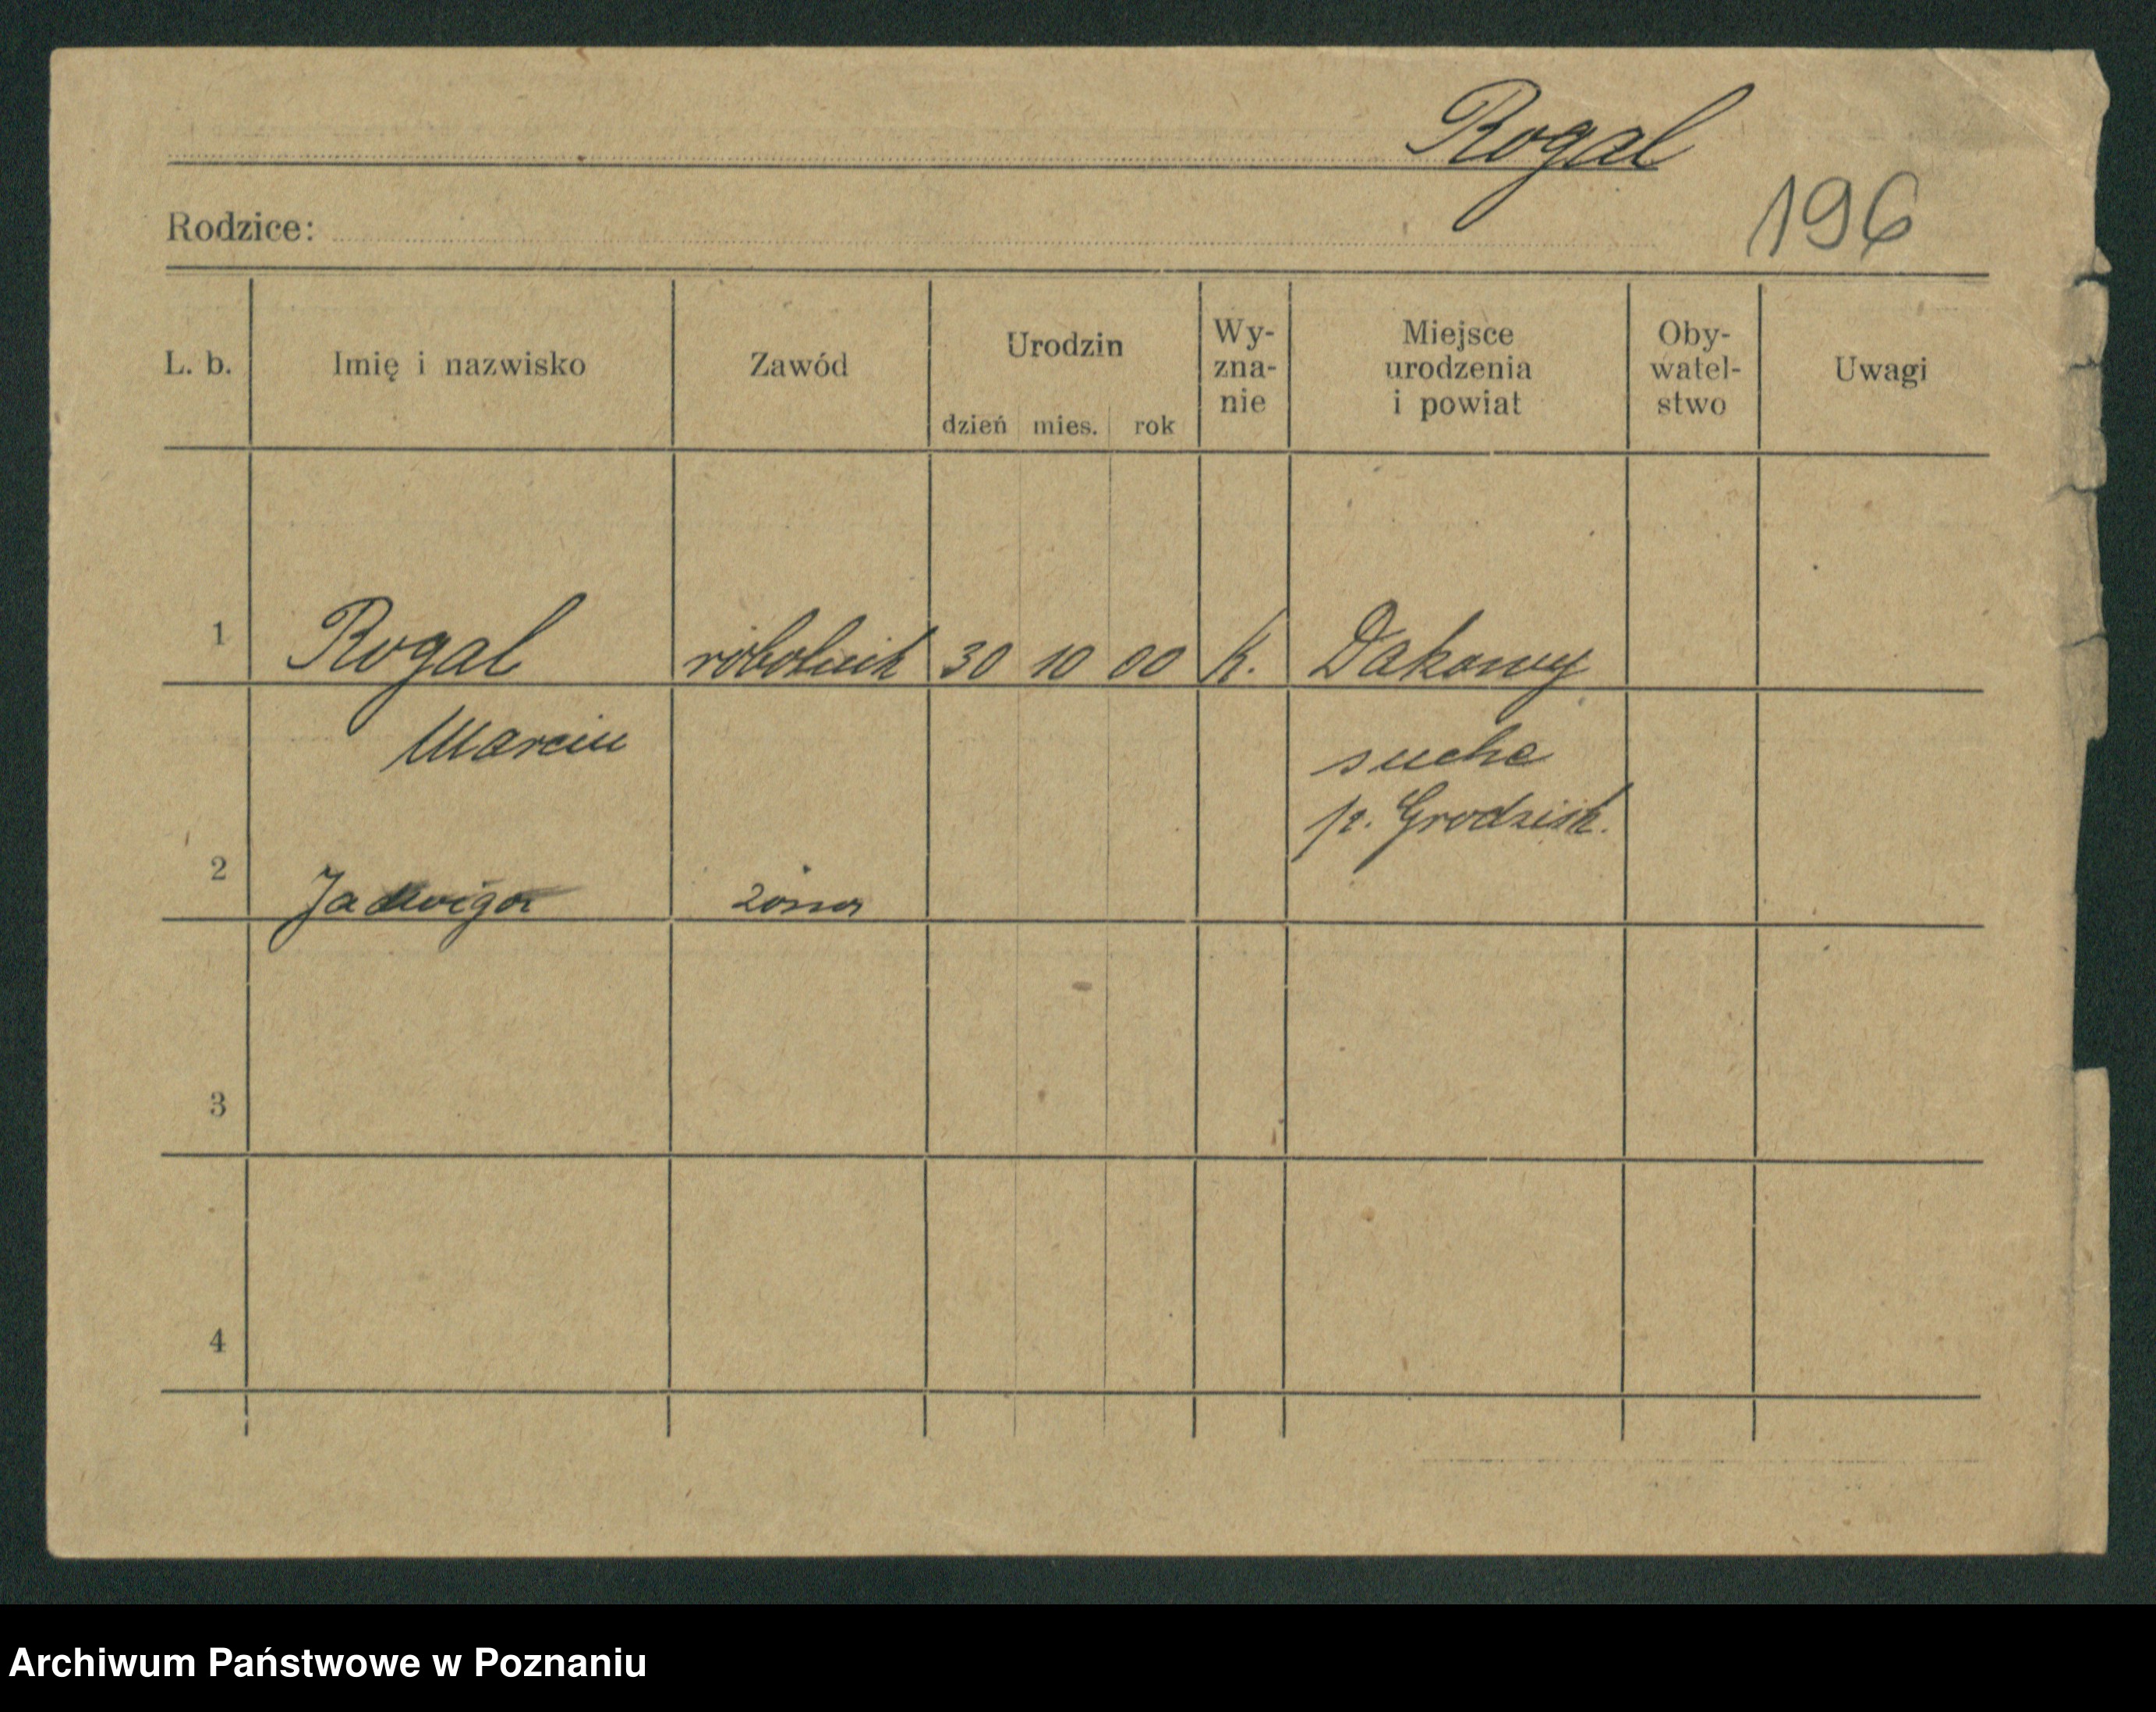 Rogal
Rodzice:
196
L. b. Imię i nazwisko Zawód Urodzin dzień mies. rok Wy-zna-nie Miejsce urodzenia i powiat Oby-watel-stwo Uwagi
1 Rogal robotnik 30 10 00 k. Dakowy
Marcin suche
p. Grodzisk.
2 Jadwiga żona
3
4
Archiwum Państwowe w Poznaniu